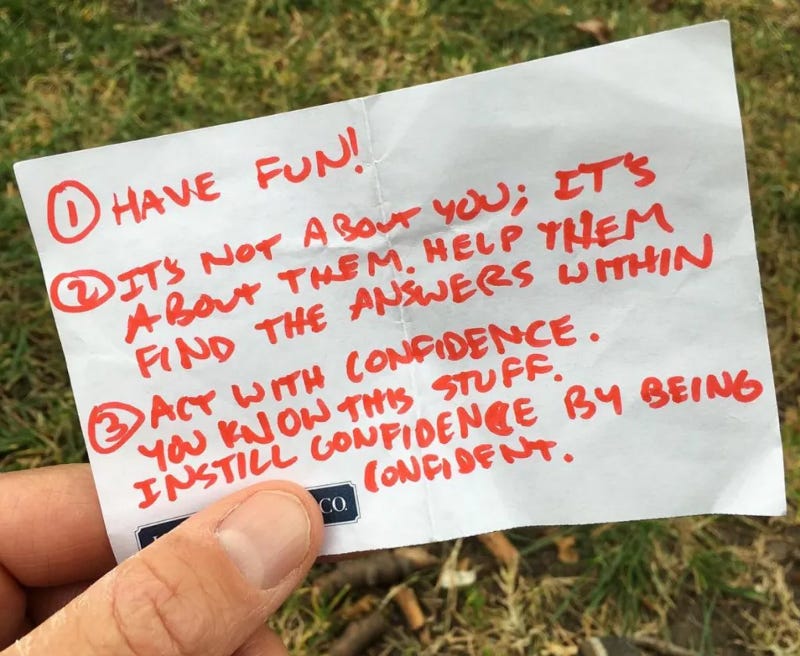 ① HAVE FUN!
② IT'S NOT ABOUT YOU; IT'S
ABOUT THEM. HELP THEM
FIND THE ANSWERS WITHIN
③ ACT WITH CONFIDENCE.
YOU KNOW THIS STUFF.
INSTILL CONFIDENCE BY BEING
CONFIDENT.
CO.